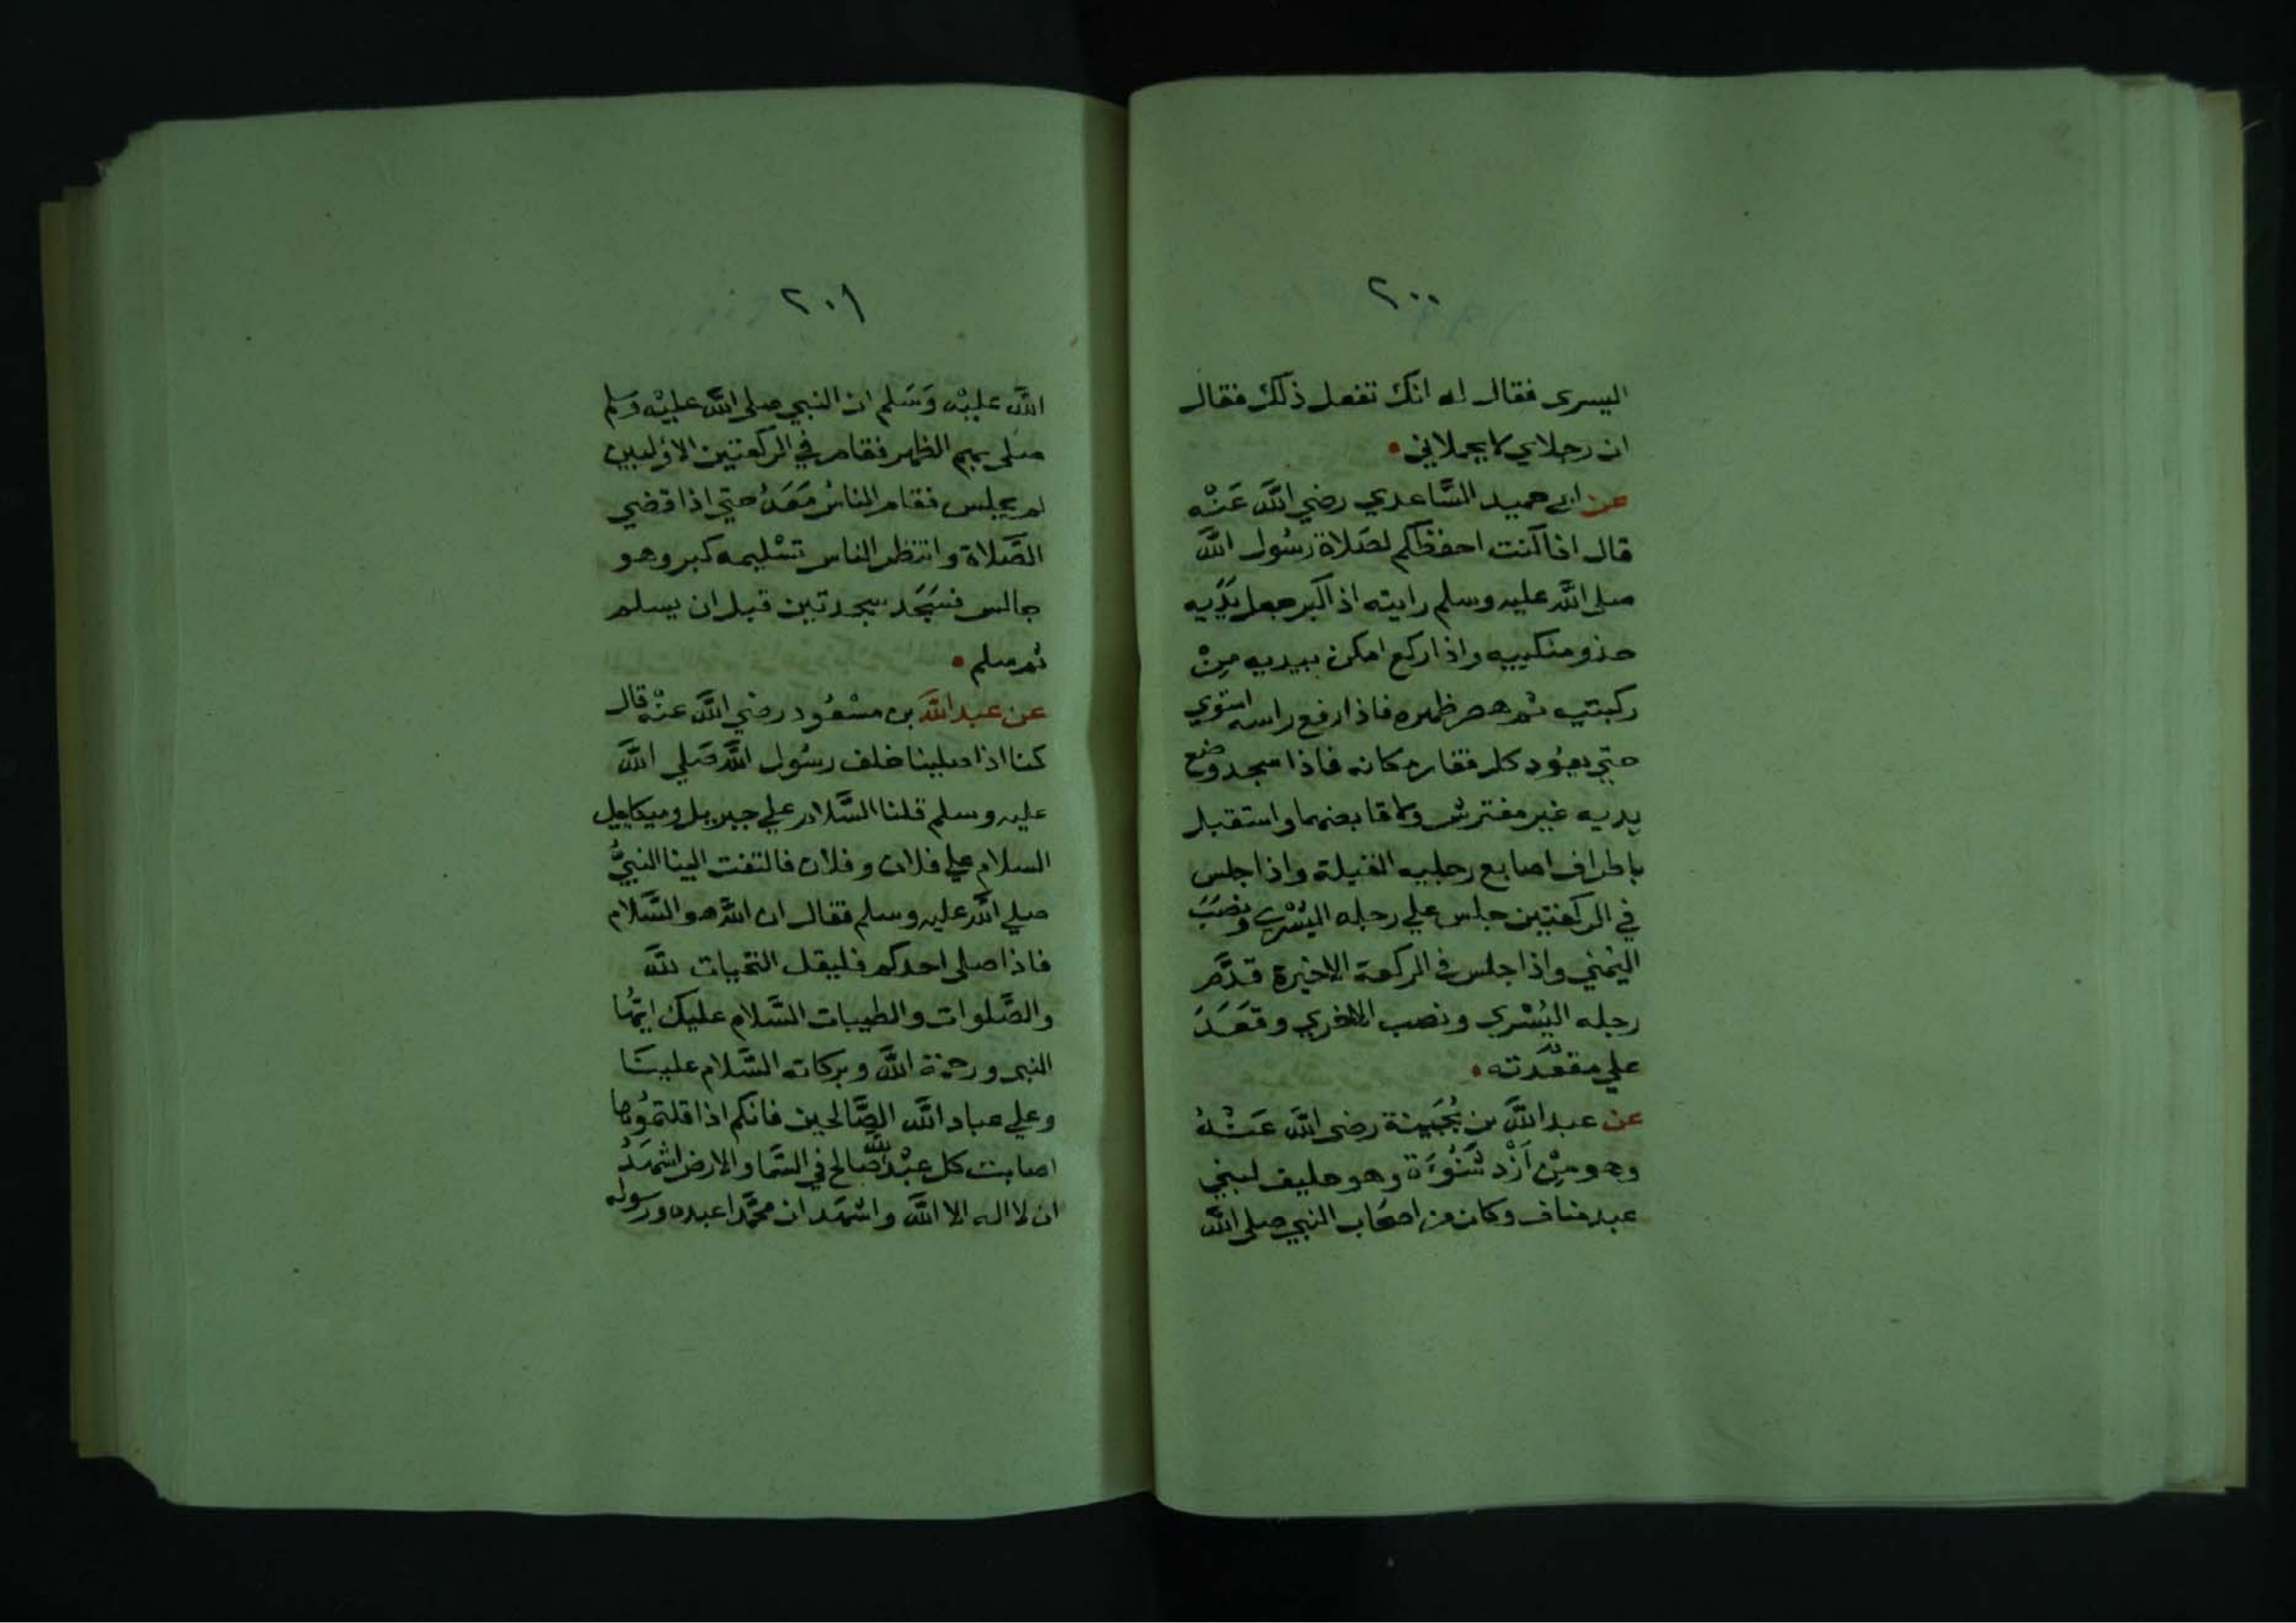 ٢٠٠
اليسرى فقال له انك تفعل ذلك فقال
ان رجلاي لا يحملاني
عن ابي حميد السَّاعدي رضي اللَّه عَنْه
قال انا كنت احفظكم لصَلاة رسُول اللَّه
صلى اللَّه عليه وسلم رايته اذا كبر جعل يدَيه
حذو منكبيه واذا ركع امكن بيديه مِنْ
ركبتيه ثم هصر ظهره فاذا رفع راسه استوي
حتي يعوُد كل فقار مكانه فاذا سجد وضع
يديه غير مفترش ولا قابضهما واستقبل
باطراف اصابع رجليه القبلة واذا جلس
في الركعتين جلس علي رجله اليُسْري ونصَبَ
اليُمني واذا جلس في الركعة الاخيرة قدَّم
رجله اليُسْري ونصب الاخري وقعَدَ
علي مقعدَته
عن عبد اللَّه بن بُحَينة رضي اللَّه عَنْهُ
وهو مِنْ اَزْد شَنُوءَة وهو حليف لبني
عبد مناف وكان من اصحَاب النبي صلى اللَّه
٢٠١
اللَّه عليْه وَسَلم ان النبي صلى اللَّه عليْه وسلم
صلى بهم الظهر فقام في الركعتين الاوُليين
لم يجلس فقام الناسُ مَعَهُ حتي اذا قضي
الصَّلاة وانتظر الناس تسْليمه كبر وهو
جالس فسَجَد سجدتين قبل ان يسلم
ثم سلم
عن عبد اللَّه بن مسْعُود رضي اللَّه عنْه قال
كنا اذا صلينا خلف رسُول اللَّه صَلي اللَّه
عليه وسلم قلنا السَّلام علي جبريل وميكاييل
السلام علي فلان وفلان فالتفت الينا النبيُّ
صلي اللَّه عليه وسلم فقال ان اللَّه هو السَّلام
فاذا صلى احدكم فليقل التحيات للَّه
والصَّلوات والطيبات السَّلام عليك ايهُّا
النبي ورحمة اللَّه وبركاته السَّلام عليْنَا
وعلي عباد اللَّه الصَّالحين فانكم اذا قلتموُها
اصابت كل عبْد للَّه صَالح في السَّما والارض اشهَدُ
ان لا اله الا اللَّه واشهَد ان محمَّدا عبده ورسوله